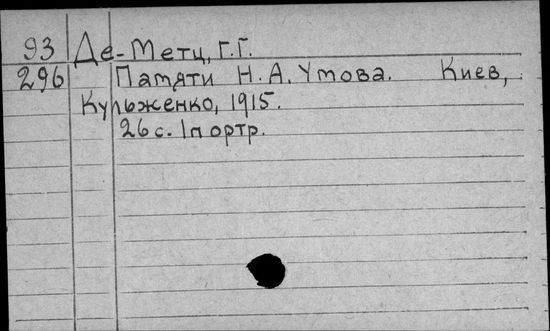 93 Де-Метц, Г.Г.
296 Памяти Н.А. Умова. Киев,
Кульженко, 1915.
26 с. 1 портр.